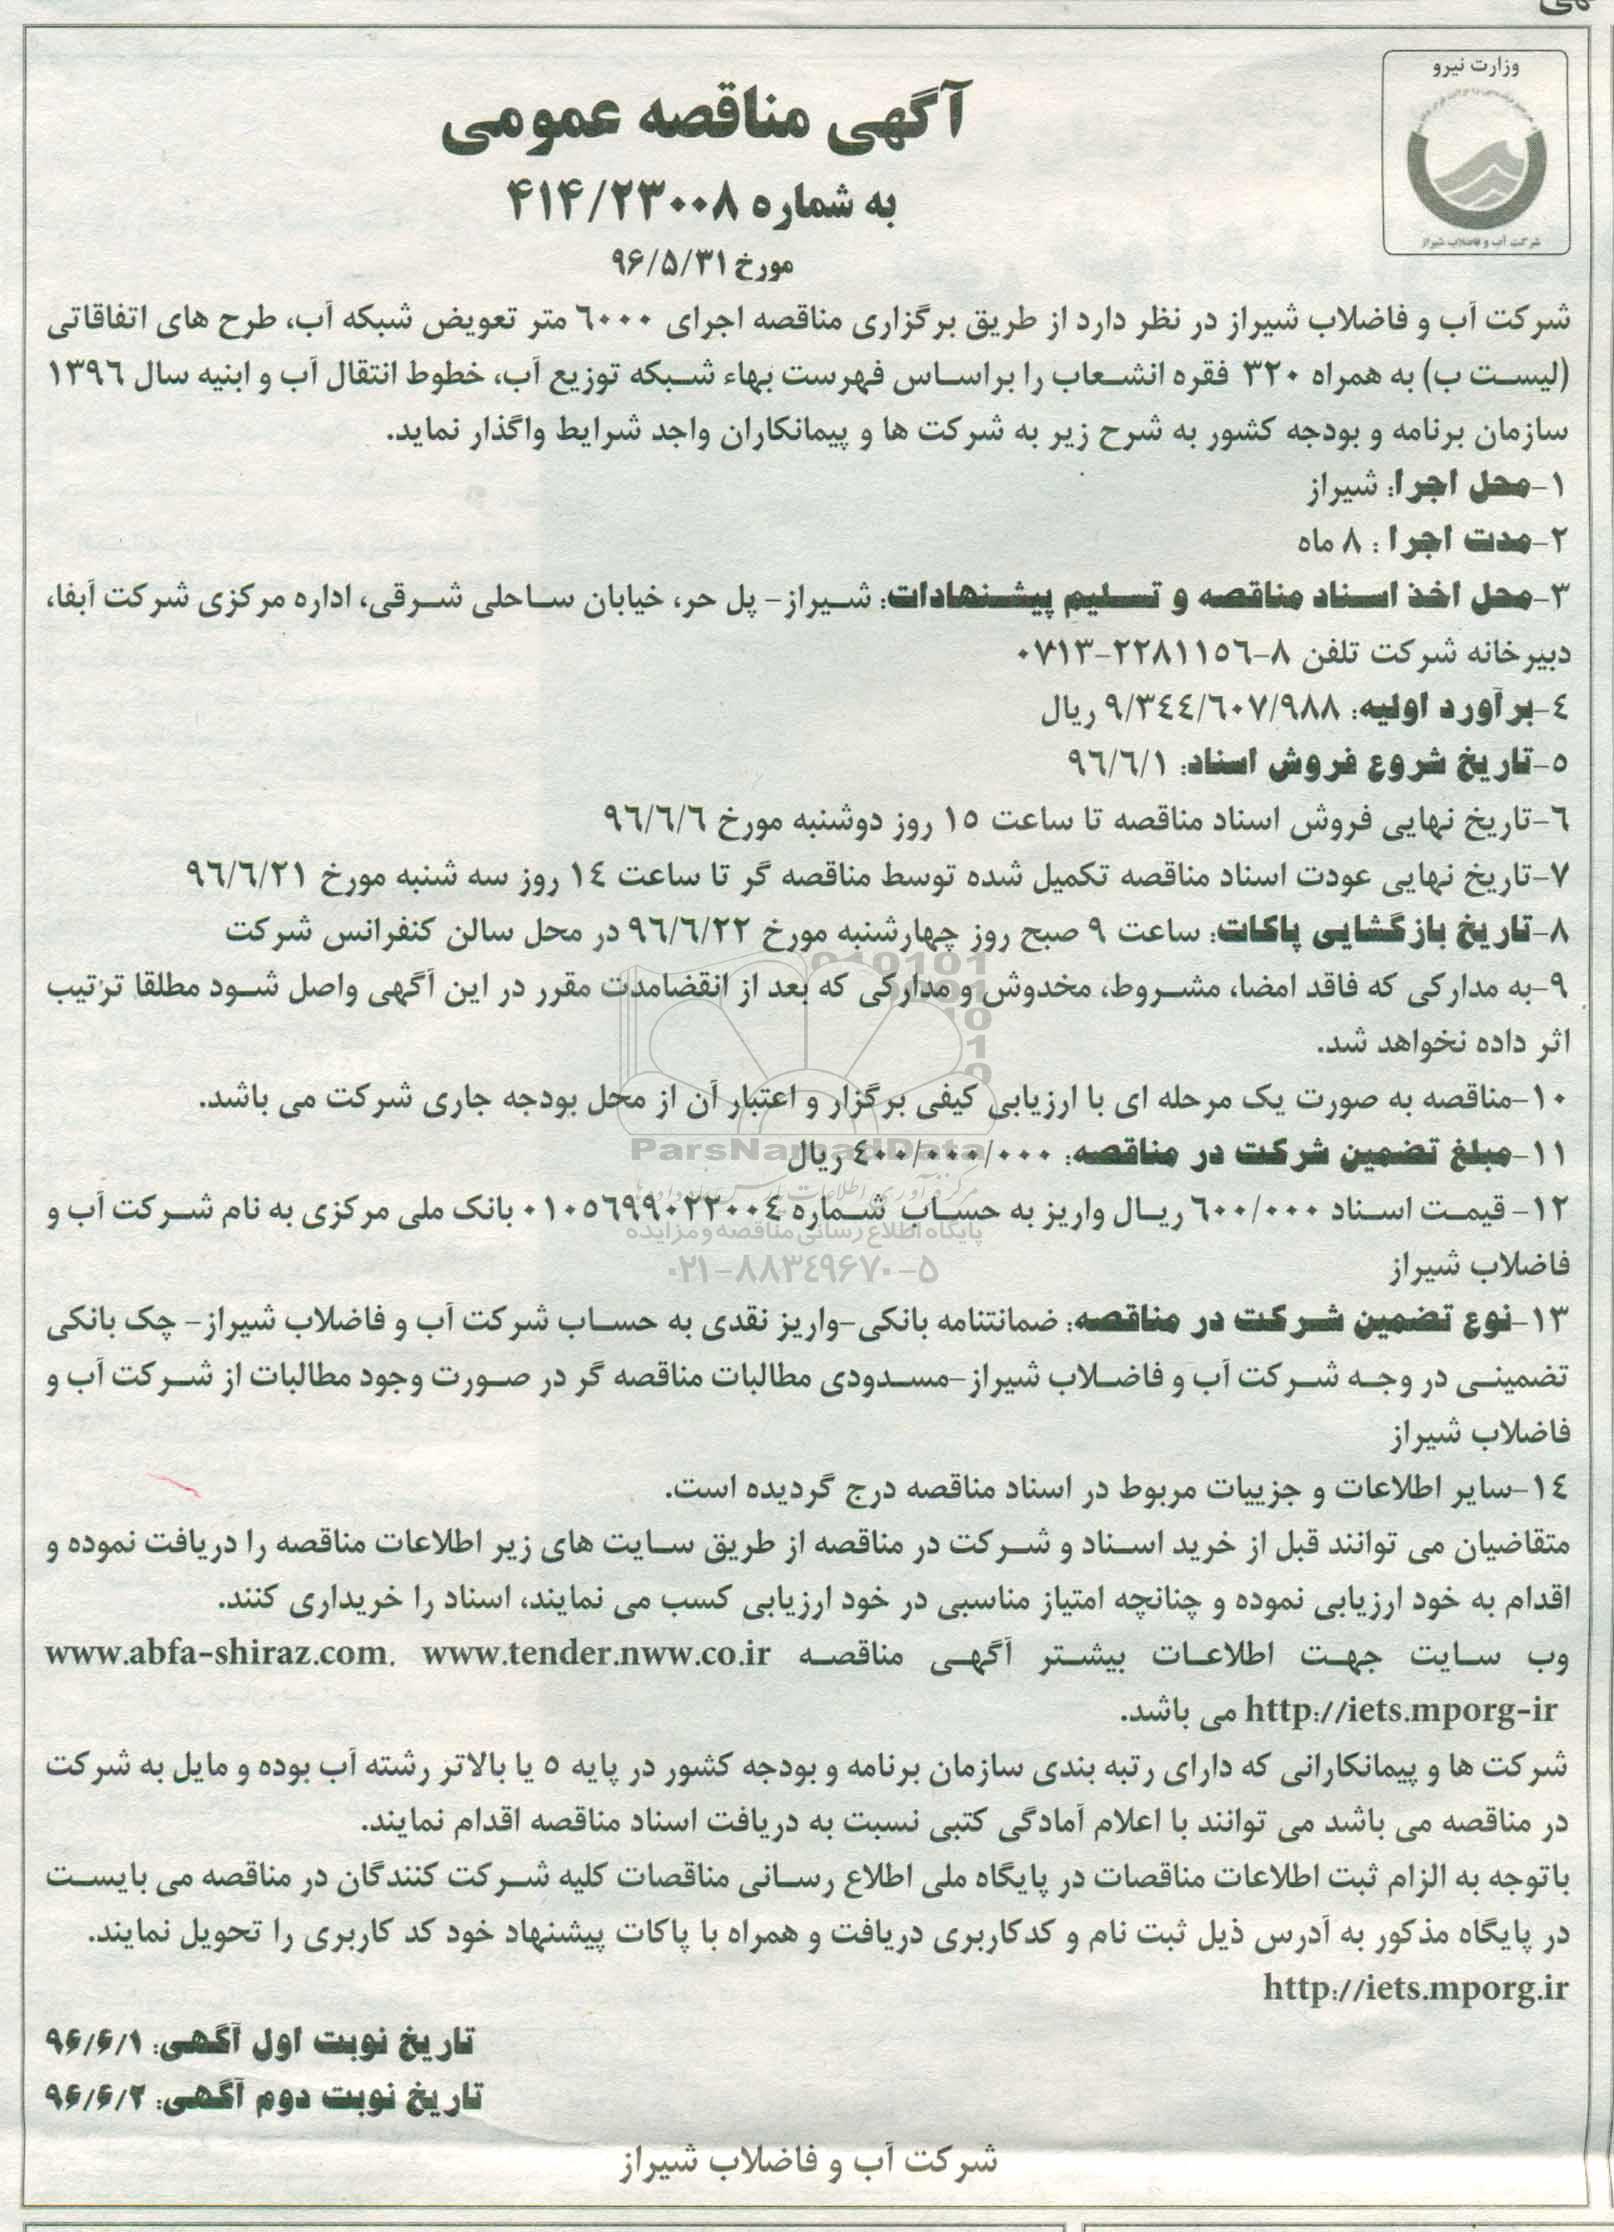 وزارت نیرو
شرکت آب و فاضلاب شیراز
آگهی مناقصه عمومی
به شماره ۴۱۴/۲۳۰۰۸
مورخ ۹۶/۵/۳۱
شرکت آب و فاضلاب شیراز در نظر دارد از طریق برگزاری مناقصه اجرای ٦٠٠٠ متر تعویض شبکه آب، طرح های اتفاقاتی
(لیست ب) به همراه ٣٢٠ فقره انشعاب را براساس فهرست بهاء شبکه توزیع آب، خطوط انتقال آب و ابنیه سال ١٣٩٦
سازمان برنامه و بودجه کشور به شرح زیر به شرکت ها و پیمانکاران واجد شرایط واگذار نماید.
١-محل اجرا: شیراز
٢-مدت اجرا : ٨ ماه
٣-محل اخذ اسناد مناقصه و تسلیم پیشنهادات: شیراز- پل حر، خیابان ساحلی شرقی، اداره مرکزی شرکت آبفا،
دبیرخانه شرکت تلفن ٨-٢٢٨١١٥٦-٠٧١٣
٤-برآورد اولیه: ٩/٣٤٤/٦٠٧/٩٨٨ ریال
٥-تاریخ شروع فروش اسناد: ٩٦/٦/١
٦-تاریخ نهایی فروش اسناد مناقصه تا ساعت ١٥ روز دوشنبه مورخ ٩٦/٦/٦
٧-تاریخ نهایی عودت اسناد مناقصه تکمیل شده توسط مناقصه گر تا ساعت ١٤ روز سه شنبه مورخ ٩٦/٦/٢١
٨-تاریخ بازگشایی پاکات: ساعت ٩ صبح روز چهارشنبه مورخ ٩٦/٦/٢٢ در محل سالن کنفرانس شرکت
٩-به مدارکی که فاقد امضا، مشروط، مخدوش و مدارکی که بعد از انقضامدت مقرر در این آگهی واصل شود مطلقا ترتیب
اثر داده نخواهد شد.
١٠-مناقصه به صورت یک مرحله ای با ارزیابی کیفی برگزار و اعتبار آن از محل بودجه جاری شرکت می باشد.
ParsNamadData
١١-مبلغ تضمین شرکت در مناقصه: ٤٠٠/٠٠٠/٠٠٠ ریال
١٢- قیمت اسناد ٦٠٠/٠٠٠ ریال واریز به حساب شماره ٠١٠٥٦٩٩٠٢٢٠٠٤ بانک ملی مرکزی به نام شرکت آب و
پایگاه اطلاع رسانی مناقصه و مزایده
فاضلاب شیراز
۰۲۱-۸۸۳۴۹۶۷۰-۵
١٣-نوع تضمین شرکت در مناقصه: ضمانتنامه بانکی-واریز نقدی به حساب شرکت آب و فاضلاب شیراز- چک بانکی
تضمینی در وجه شرکت آب و فاضلاب شیراز-مسدودی مطالبات مناقصه گر در صورت وجود مطالبات از شرکت آب و
فاضلاب شیراز
١٤-سایر اطلاعات و جزییات مربوط در اسناد مناقصه درج گردیده است.
متقاضیان می توانند قبل از خرید اسناد و شرکت در مناقصه از طریق سایت های زیر اطلاعات مناقصه را دریافت نموده و
اقدام به خود ارزیابی نموده و چنانچه امتیاز مناسبی در خود ارزیابی کسب می نمایند، اسناد را خریداری کنند.
وب سایت جهت اطلاعات بیشتر آگهی مناقصه www.abfa-shiraz.com. www.tender.nww.co.ir
http://iets.mporg-ir می باشد.
شرکت ها و پیمانکارانی که دارای رتبه بندی سازمان برنامه و بودجه کشور در پایه ٥ یا بالاتر رشته آب بوده و مایل به شرکت
در مناقصه می باشد می توانند با اعلام آمادگی کتبی نسبت به دریافت اسناد مناقصه اقدام نمایند.
باتوجه به الزام ثبت اطلاعات مناقصات در پایگاه ملی اطلاع رسانی مناقصات کلیه شرکت کنندگان در مناقصه می بایست
در پایگاه مذکور به آدرس ذیل ثبت نام و کدکاربری دریافت و همراه با پاکات پیشنهاد خود کد کاربری را تحویل نمایند.
http://iets.mporg.ir
تاریخ نوبت اول آگهی: ۹۶/۶/۱
تاریخ نوبت دوم آگهی: ۹۶/۶/۲
شرکت آب و فاضلاب شیراز